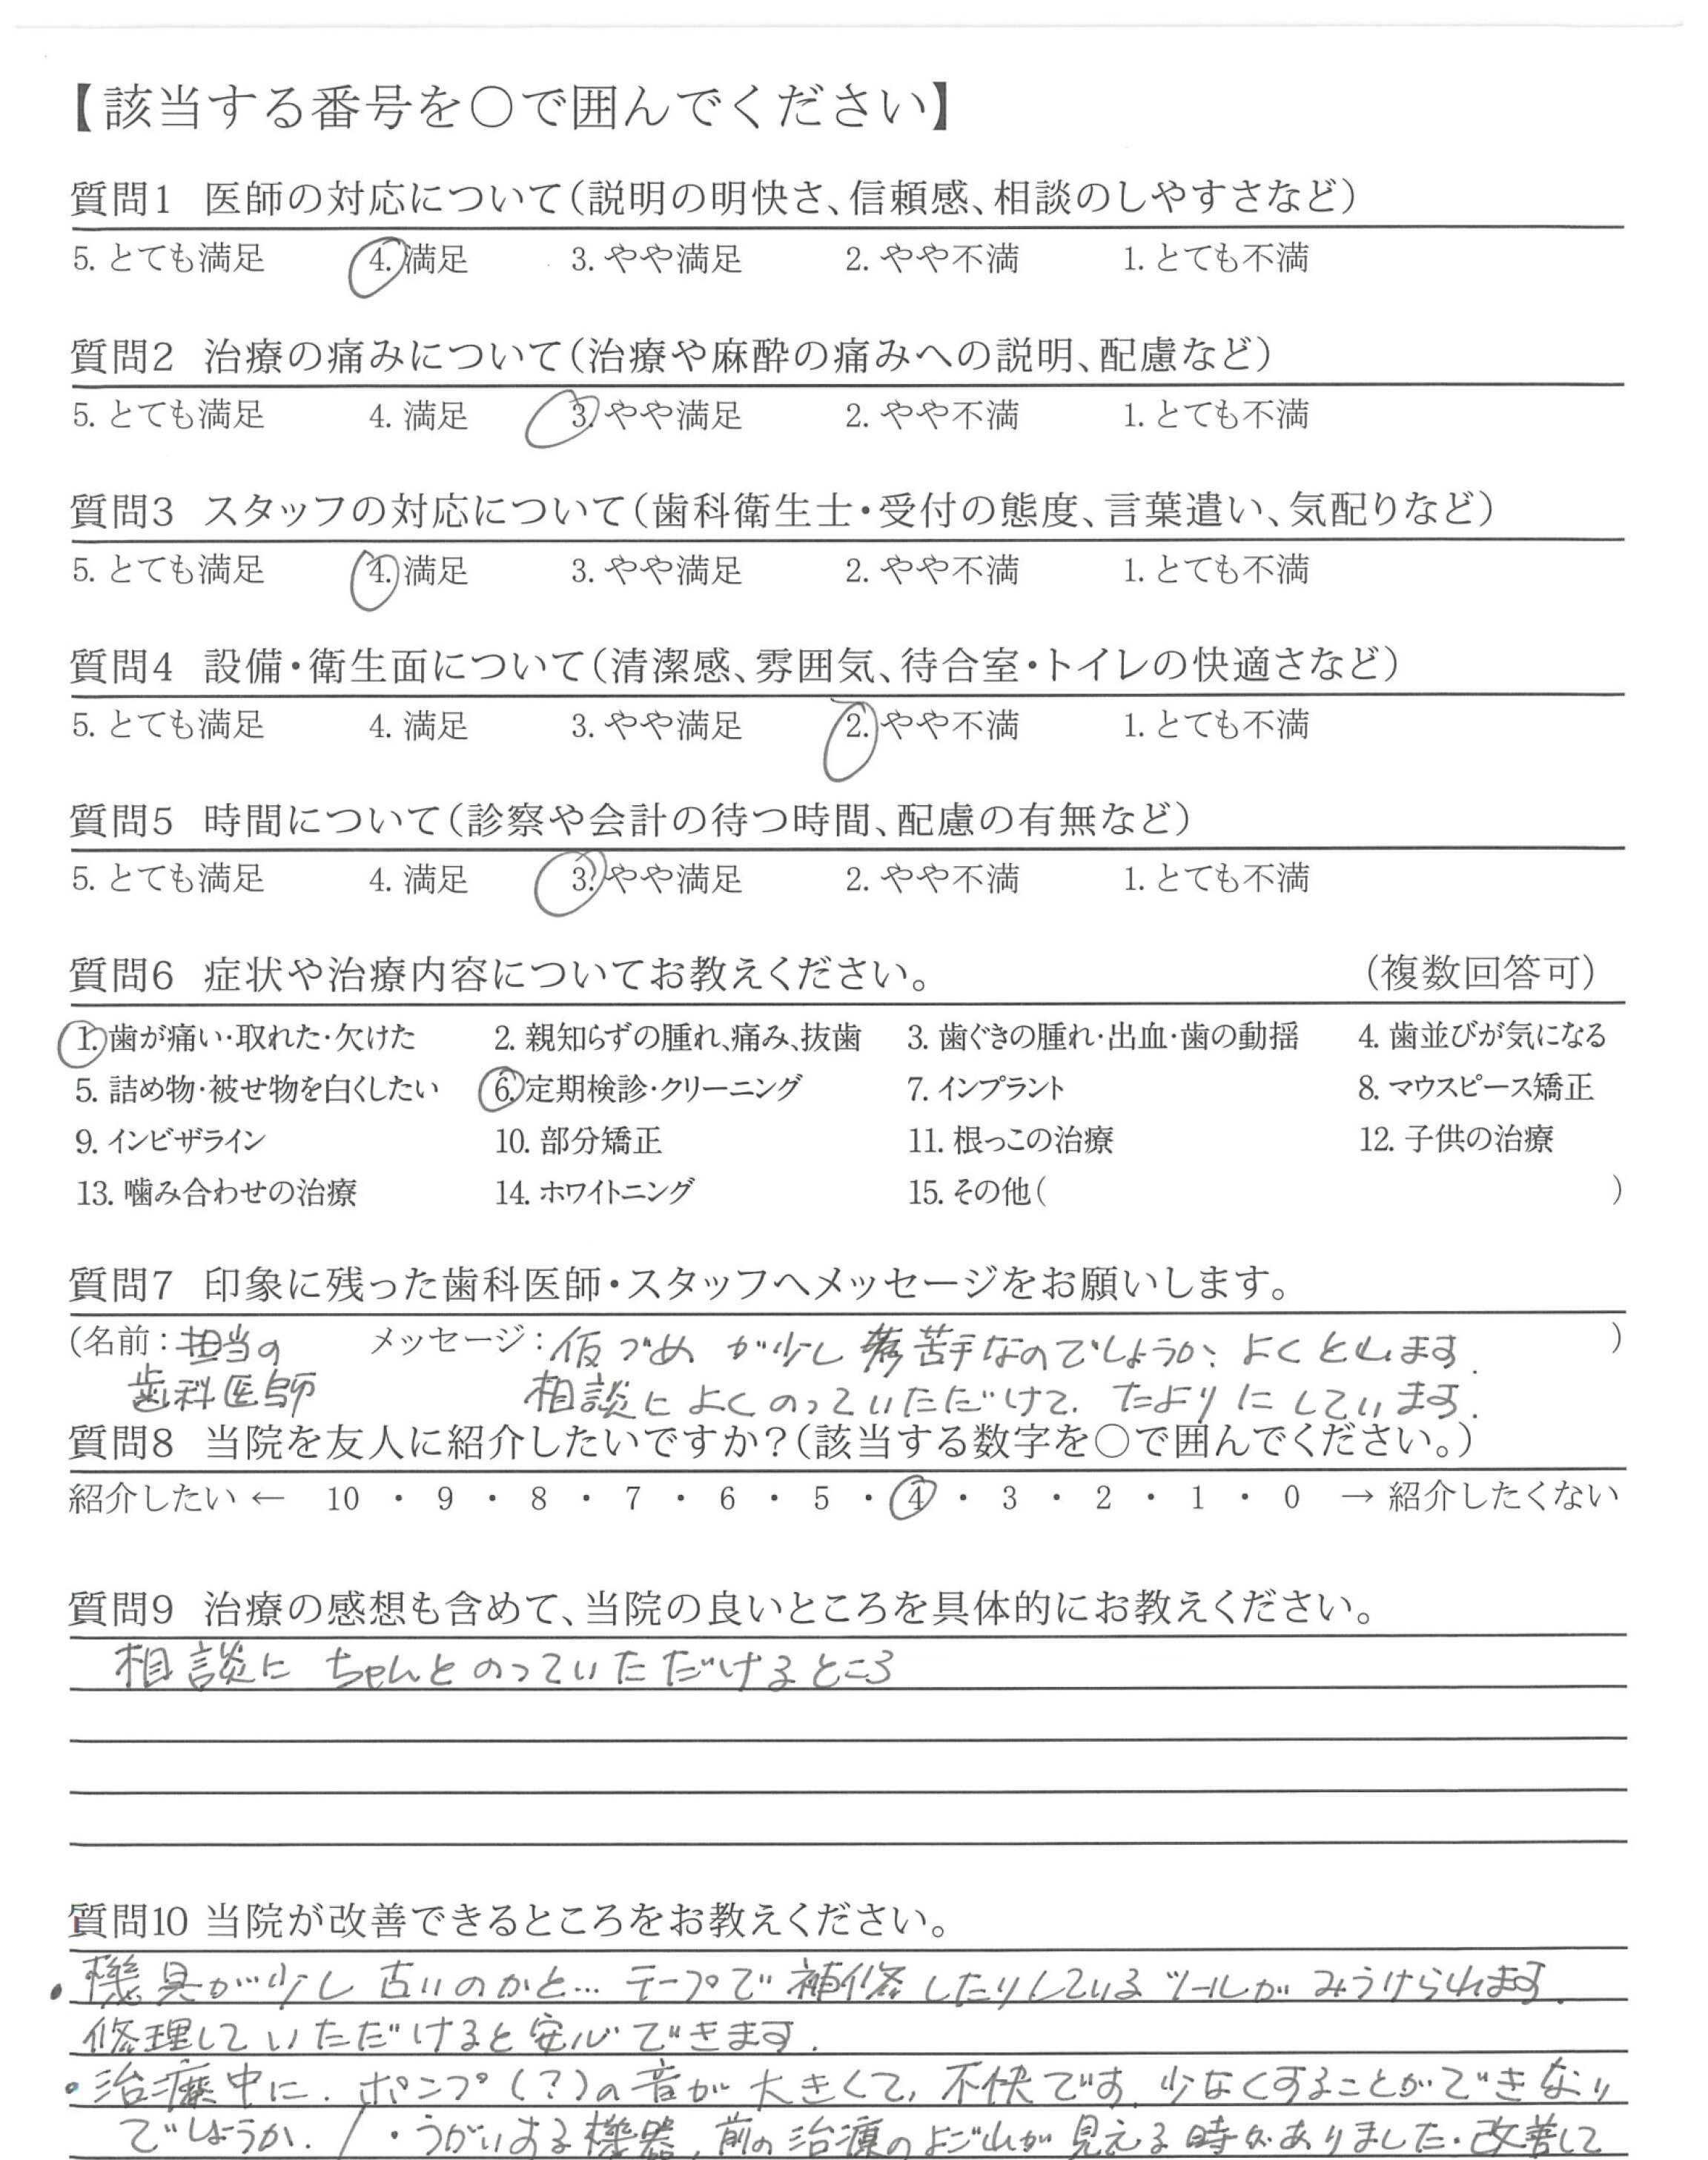 【該当する番号を○で囲んでください】
質問1 医師の対応について(説明の明快さ、信頼感、相談のしやすさなど)
5. とても満足 4. 満足 3. やや満足 2. やや不満 1. とても不満
質問2 治療の痛みについて(治療や麻酔の痛みへの説明、配慮など)
5. とても満足 4. 満足 3. やや満足 2. やや不満 1. とても不満
質問3 スタッフの対応について(歯科衛生士・受付の態度、言葉遣い、気配りなど)
5. とても満足 4. 満足 3. やや満足 2. やや不満 1. とても不満
質問4 設備・衛生面について(清潔感、雰囲気、待合室・トイレの快適さなど)
5. とても満足 4. 満足 3. やや満足 2. やや不満 1. とても不満
質問5 時間について(診察や会計の待つ時間、配慮の有無など)
5. とても満足 4. 満足 3. やや満足 2. やや不満 1. とても不満
質問6 症状や治療内容についてお教えください。 (複数回答可)
1. 歯が痛い・取れた・欠けた 2. 親知らずの腫れ、痛み、抜歯 3. 歯ぐきの腫れ・出血・歯の動揺 4. 歯並びが気になる
5. 詰め物・被せ物を白くしたい 6. 定期検診・クリーニング 7. インプラント 8. マウスピース矯正
9. インビザライン 10. 部分矯正 11. 根っこの治療 12. 子供の治療
13. 噛み合わせの治療 14. ホワイトニング 15. その他( )
質問7 印象に残った歯科医師・スタッフへメッセージをお願いします。
(名前：担当の メッセージ：仮づめ が少し 苦手なのでしょうか、よくとれます. )
歯科医師 相談によくのっていただけて、たよりにしています.
質問8 当院を友人に紹介したいですか？(該当する数字を○で囲んでください。)
紹介したい ← 10 ・ 9 ・ 8 ・ 7 ・ 6 ・ 5 ・ 4 ・ 3 ・ 2 ・ 1 ・ 0 → 紹介したくない
質問9 治療の感想も含めて、当院の良いところを具体的にお教えください。
相談に ちゃんとのっていただけるところ
質問10 当院が改善できるところをお教えください。
・機具が少し古いのかと… テープで補修したりしているツールがみうけられます.
修理していただけると安心できます.
・治療中に、ポンプ(？)の音が大きくて、不快です. 少なくすることができない
でしょうか. / ・うがいする機器、前の治療のよごれが見える時がありました・改善して